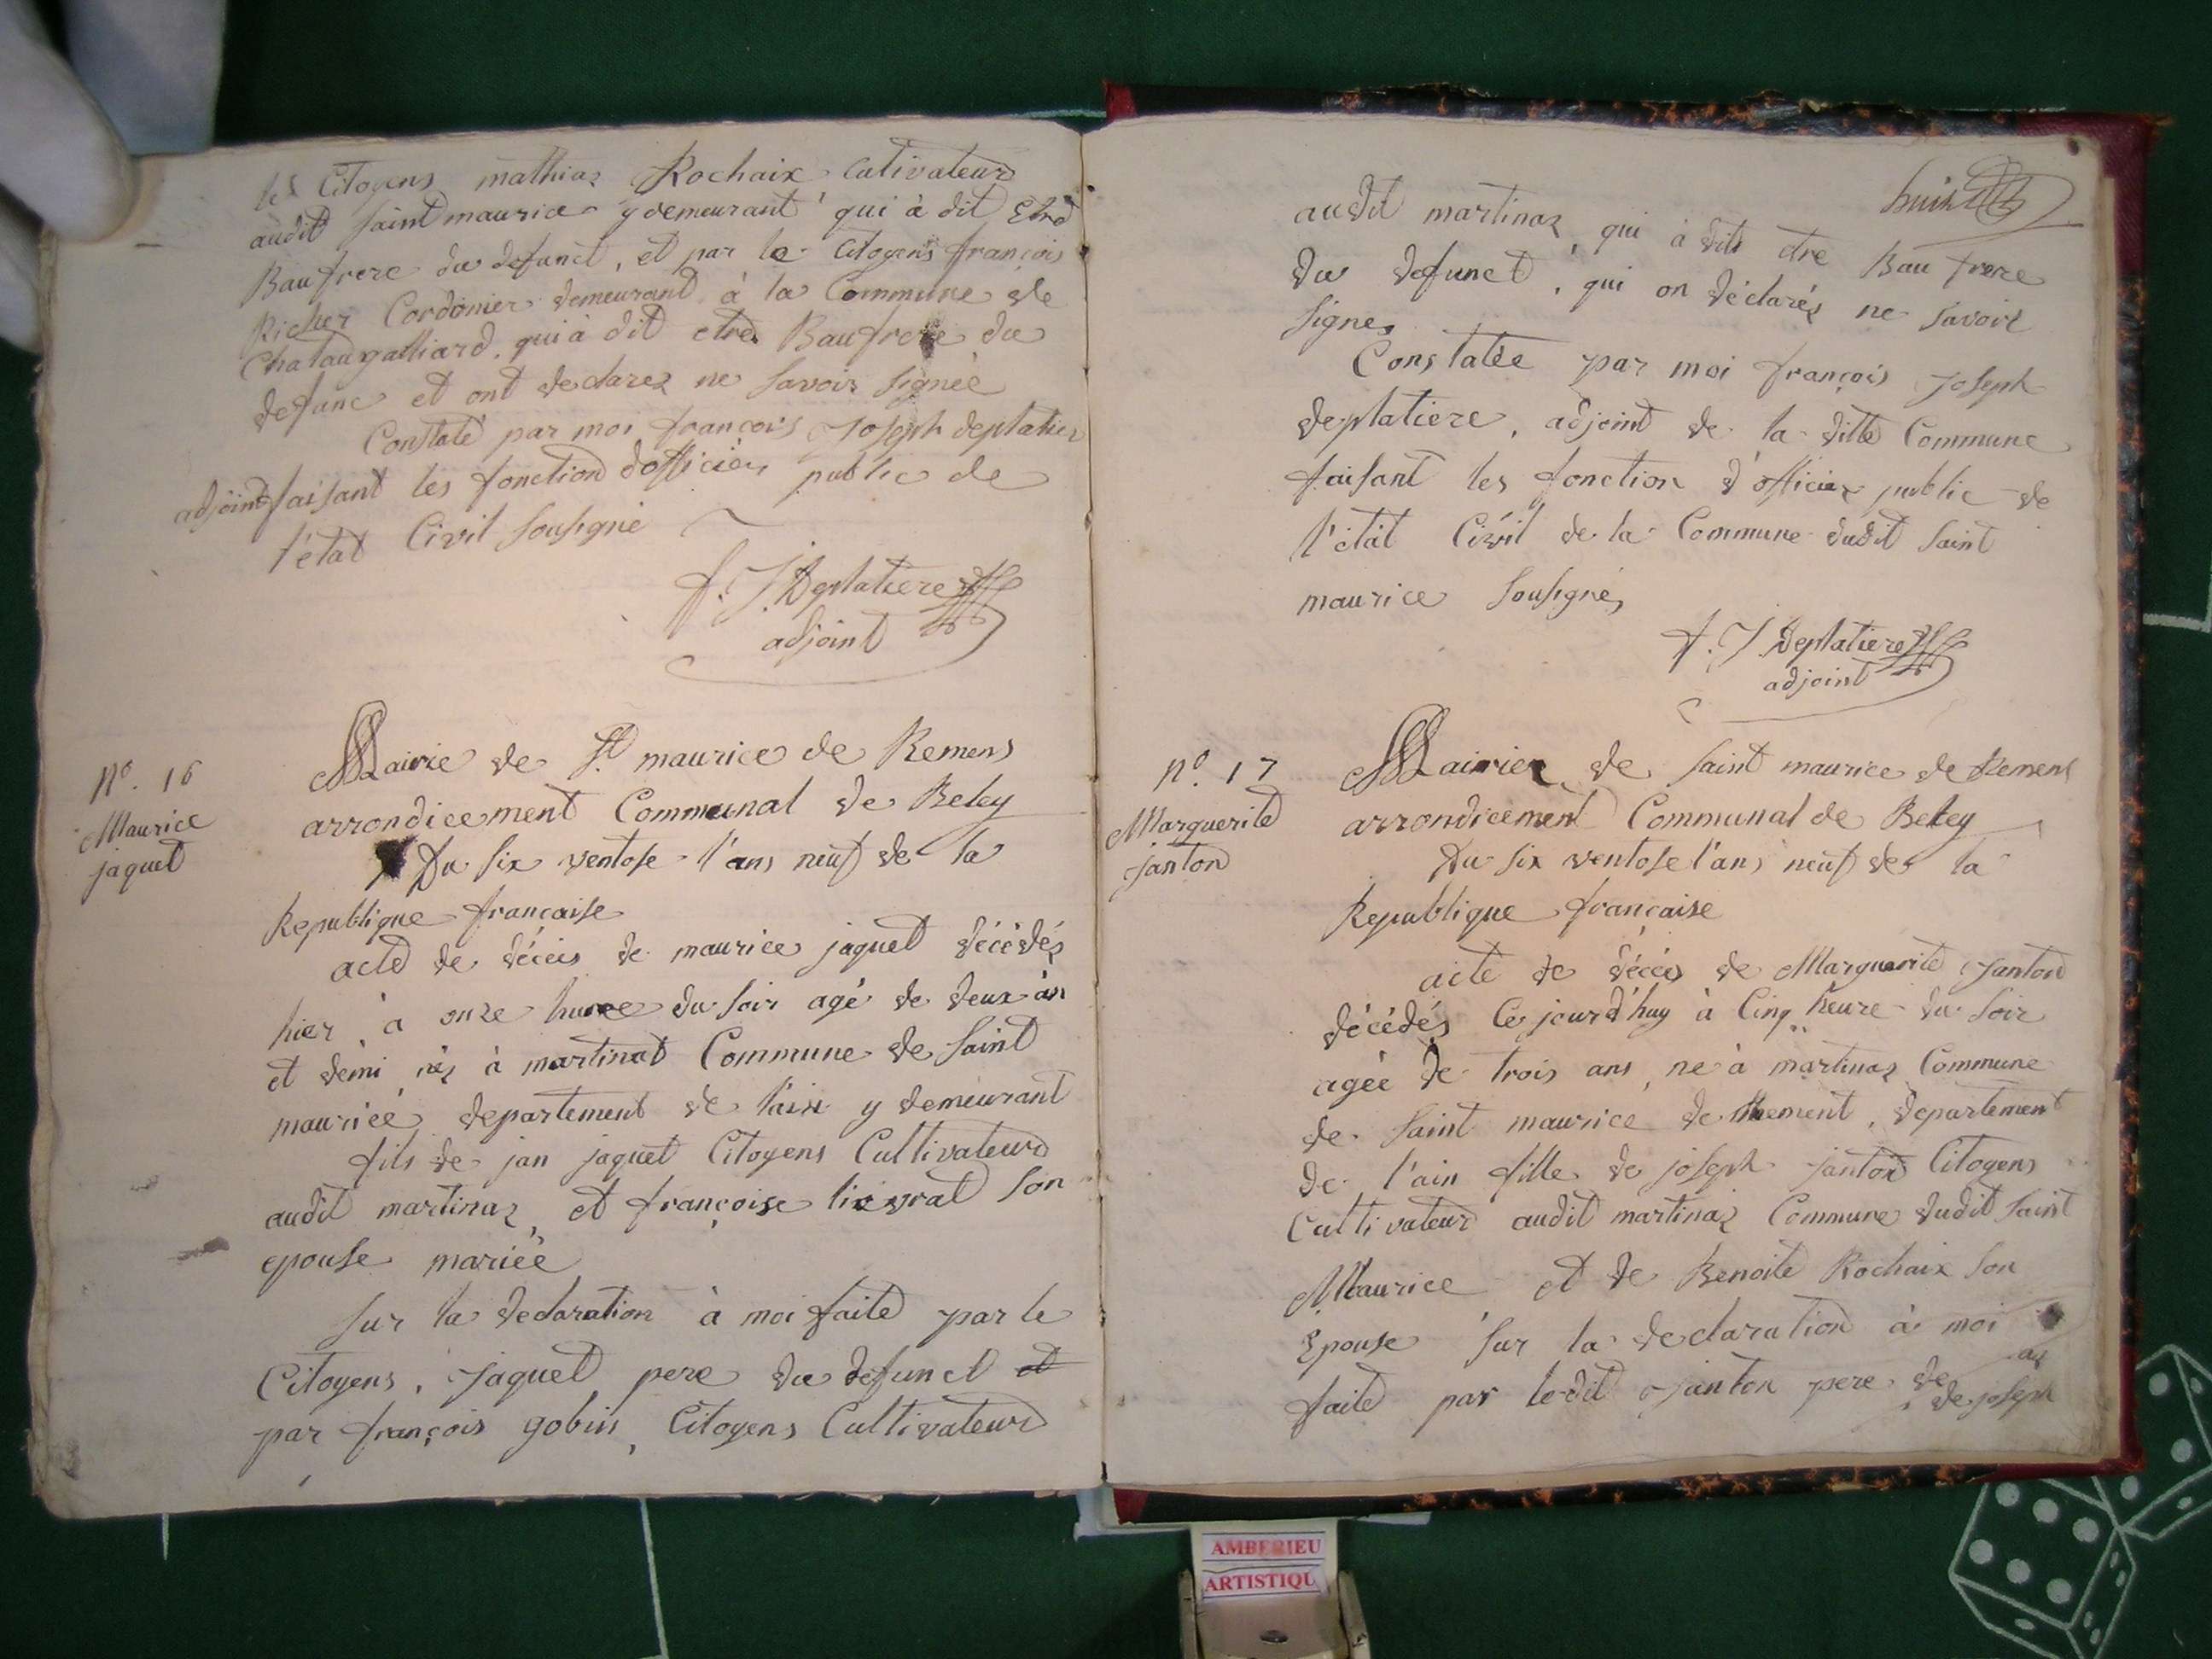 les Citoyens mathias Rochaix Cutivateur
audit saint maurice y demeurant qui à dit Etre
Baufrere du defunct, et par le Citoyens françois
Richer Cordonier demeurant à la Commune de
Chataugalliard, qui à dit etre Baufrere du
defunc et ont declarez ne savoir signée
Constaté par moi françois Joseph deplatier
adjoint faisant les fonction dofficier public de
l'état Civil sousigné
f. J. Deplatiere
adjoint
N°. 16
Maurice
jaquet
Mairie de St maurice de Remens
arrondicement Communal de Beley
Du six ventose l'ans neuf de la
Republique française
acte de décés de maurice jaquet décédés
hier à onze hure du soir agé de deux an
et demi nés à martinat Commune de saint
maurice departement de l'ain y demeurant
fils de jan jaquet Citoyens Cultivateur
audit martinaz et françoise lievrat son
epouse mariée
sur la declaration à moi faite par le
Citoyens, jaquet pere du defunct et
par françois gobin, Citoyens Cultivateur
huit
audit martinaz, qui à dit etre Bau frere
du defunct, qui on déclarés ne savoir
signer
Constatée par moi françois joseph
deplatiere, adjoint de la ditte Commune
faisant les fonction d'officier public de
l'état Civil de la Commune dudit saint
maurice sousignés
f. J. Deplatiere
adjoint
N°. 17
Marguerite
janton
Mairiez de saint maurice de Remens
arrondicement Communal de Beley
Du six ventose l'ans neuf de la
Republique française
acte de décés de Marguerite janton
décédés Ce jourd'huy à Cinq heure du soir
agée de trois ans, ne à martinaz Commune
de saint maurice de Rement, departement
de l'ain fille de joseph janton Citoyens
Cultivateur audit martinaz Commune dudit saint
Maurice et de Benoite Rochaix son
Epouse sur la declaration à moi
faite par ledit janton pere de
de joseph
AMBERIEU
ARTISTIQU